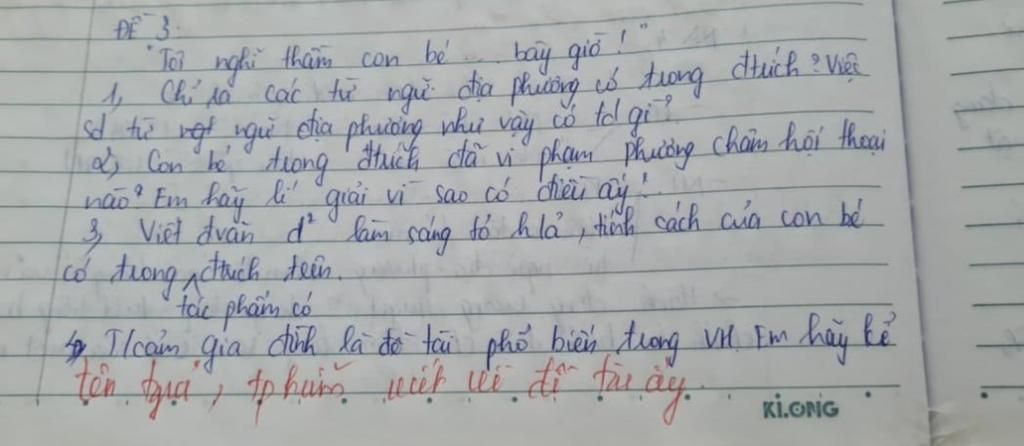 ĐỀ 3:
"Tôi nghĩ thầm con bé ... bây giờ!"
1, Chỉ ra các từ ngữ địa phương có trong đtrích? Việc
sd từ ngữ địa phương như vậy có td gì?
2, Con bé trong đtrích đã vi phạm phương châm hội thoại
nào? Em hãy lí giải vì sao có điều ấy!
3, Viết đvăn d² làm sáng tỏ h/ả, tính cách của con bé
có trong đtrích trên.
tác phẩm có
4, T/cảm gia đình là đề tài phổ biến trong VH. Em hãy kể
tên tgiả, tphẩm viết về đề tài ấy.
KLONG